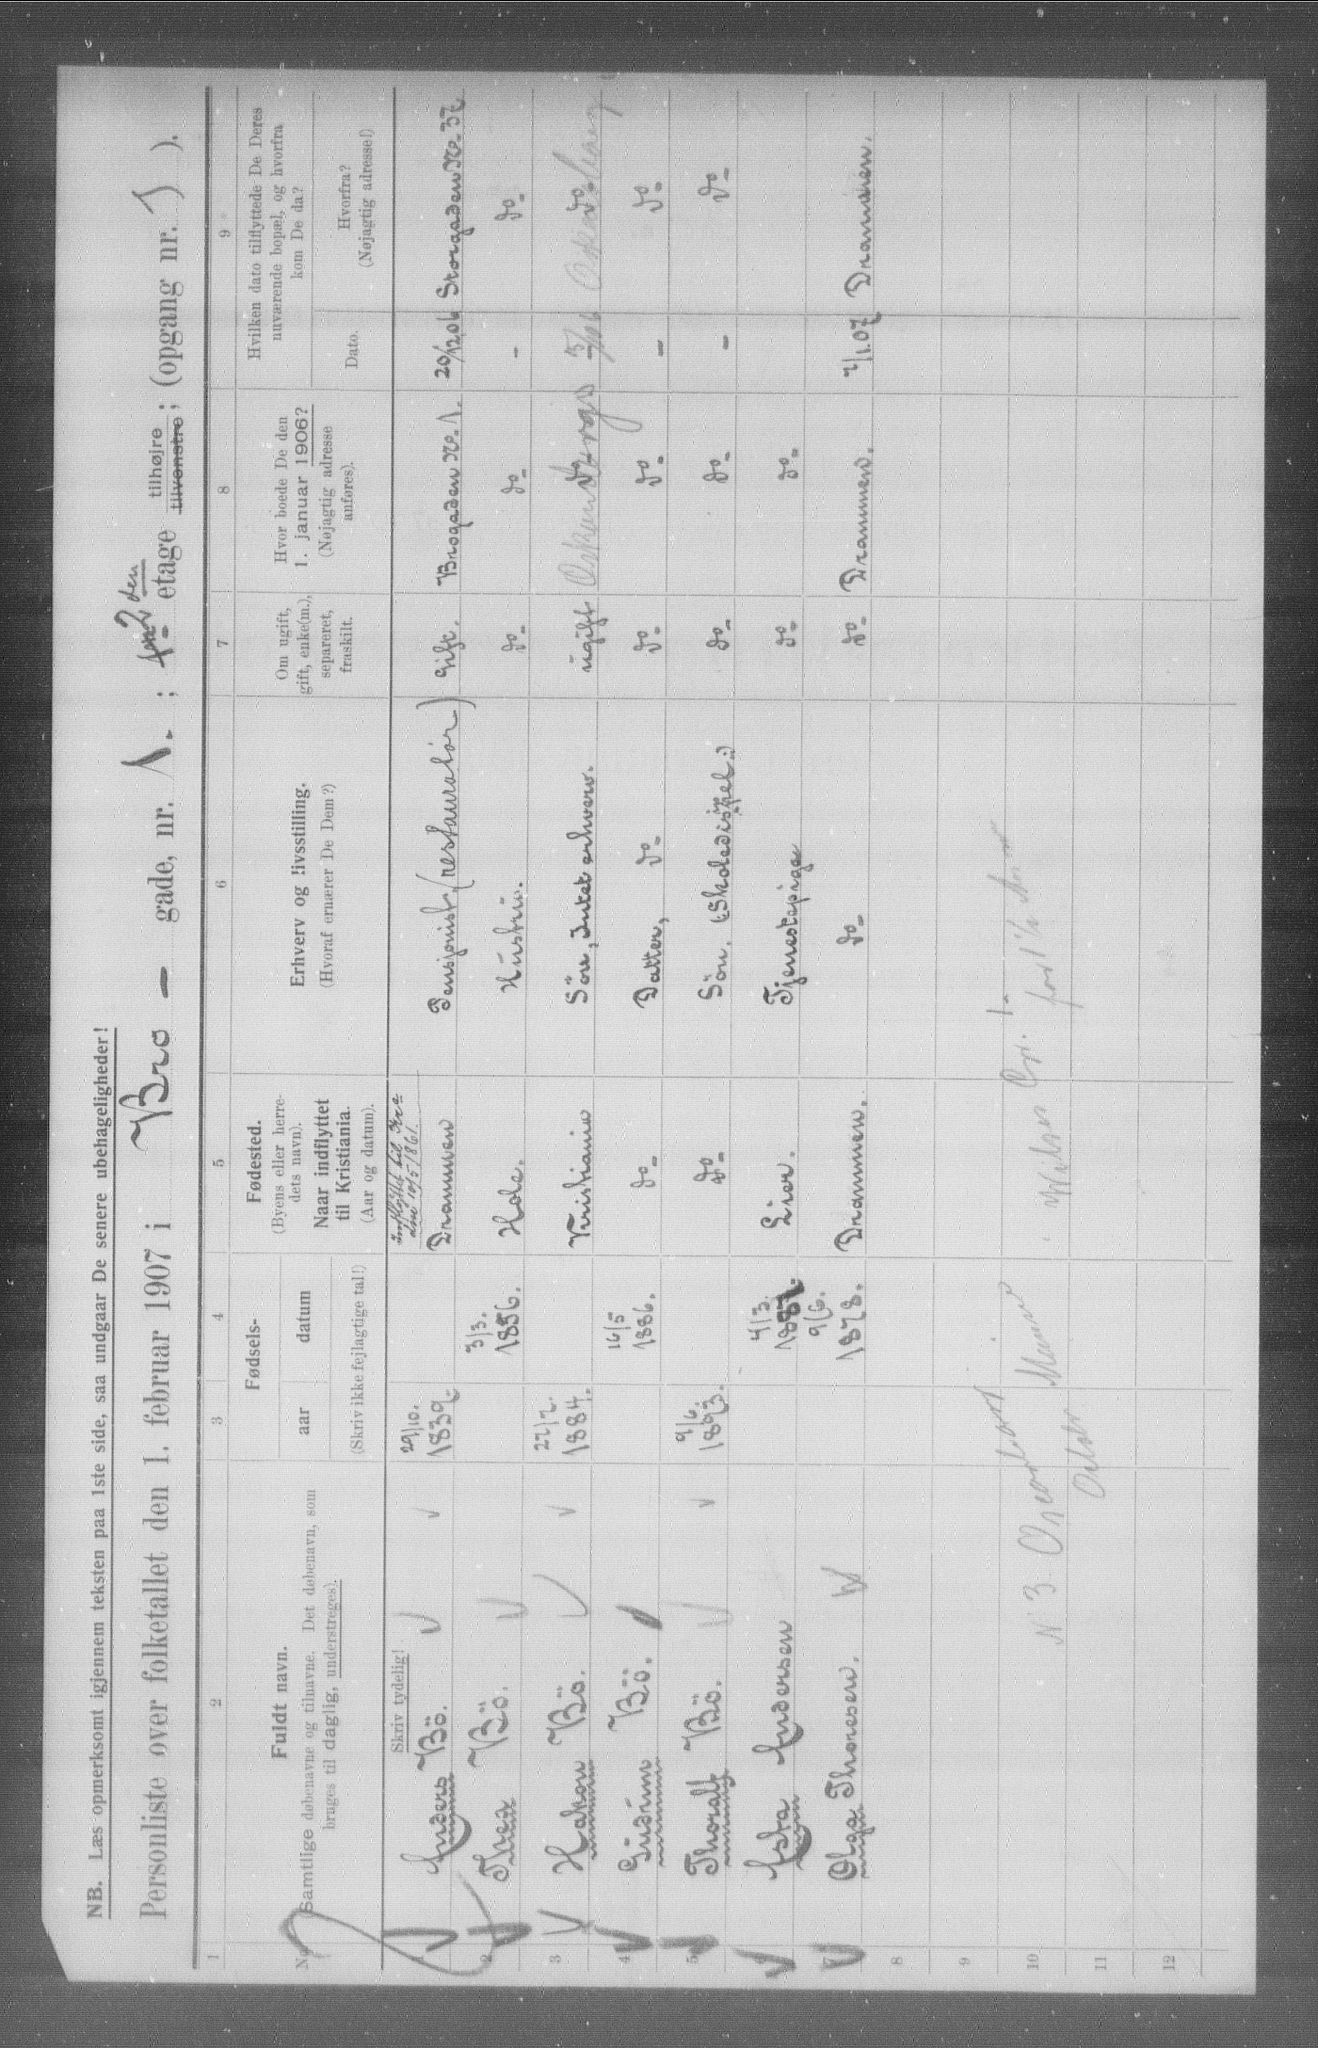 NB. Læs opmerksomt igjennem teksten paa 1ste side, saa undgaar De senere ubehageligheder!
Personliste over folketallet den 1. februar 1907 i Bro — gade, nr. 1. ; 2den etage tilhøjre tilvenstre ; (opgang nr. 1 ).
1 2 3 4 5 6 7 8 9
Fuldt navn.
Samtlige døbenavne og tilnavne. Det døbenavn, som
bruges til daglig, understreges).
Skriv tydelig!
Fødsels-
aar datum
(Skriv ikke fejlagtige tal!)
Fødested.
(Byens eller herre-
dets navn).
Naar indflyttet
til Kristiania.
(Aar og datum).
Erhverv og livsstilling.
(Hvoraf ernærer De Dem?)
Om ugift,
gift, enke(m.),
separeret,
fraskilt.
Hvor boede De den
1. januar 1906?
(Nøjagtig adresse
anføres).
Hvilken dato tilflyttede De Deres
nuværende bopæl, og hvorfra
kom De da?
Dato.
Hvorfra?
(Nøjagtig adresse!)
indflyttet til Kra
den 10/5 1861.
Anders Bö. 29/10. 1839. Drammen Pensjonist, (restauratör) Gift. Brogaden No. 1. 20/12.06 Storgaden No. 37
2 Thea Bö. 3/3. 1856. Hole. Hustru. do. do. - do.
3 Hakon Bö. 22/2. 1884. Kristiania Sön, Intet erhverv. ugift do. do.
4 Gudrun Bö. 16/5 1886. do. Datter, do. do. do. - do.
5 Thoralf Bö. 9/6. 1893. do. Sön. (Skoledisipel.) do. do. - do.
Asta Andersen 4/3. Lier. Tjenestepige do. do.
Olga Thoresen. 9/6. 1878. Drammen. do. do. Drammen. 2/1.07 Drammen.
8
9
10
No 3
11
12